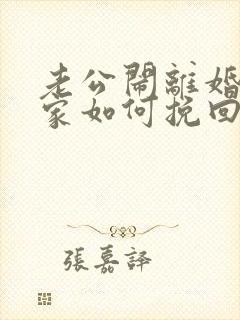 老公鬧離婚
家如何挽回
張嘉譯